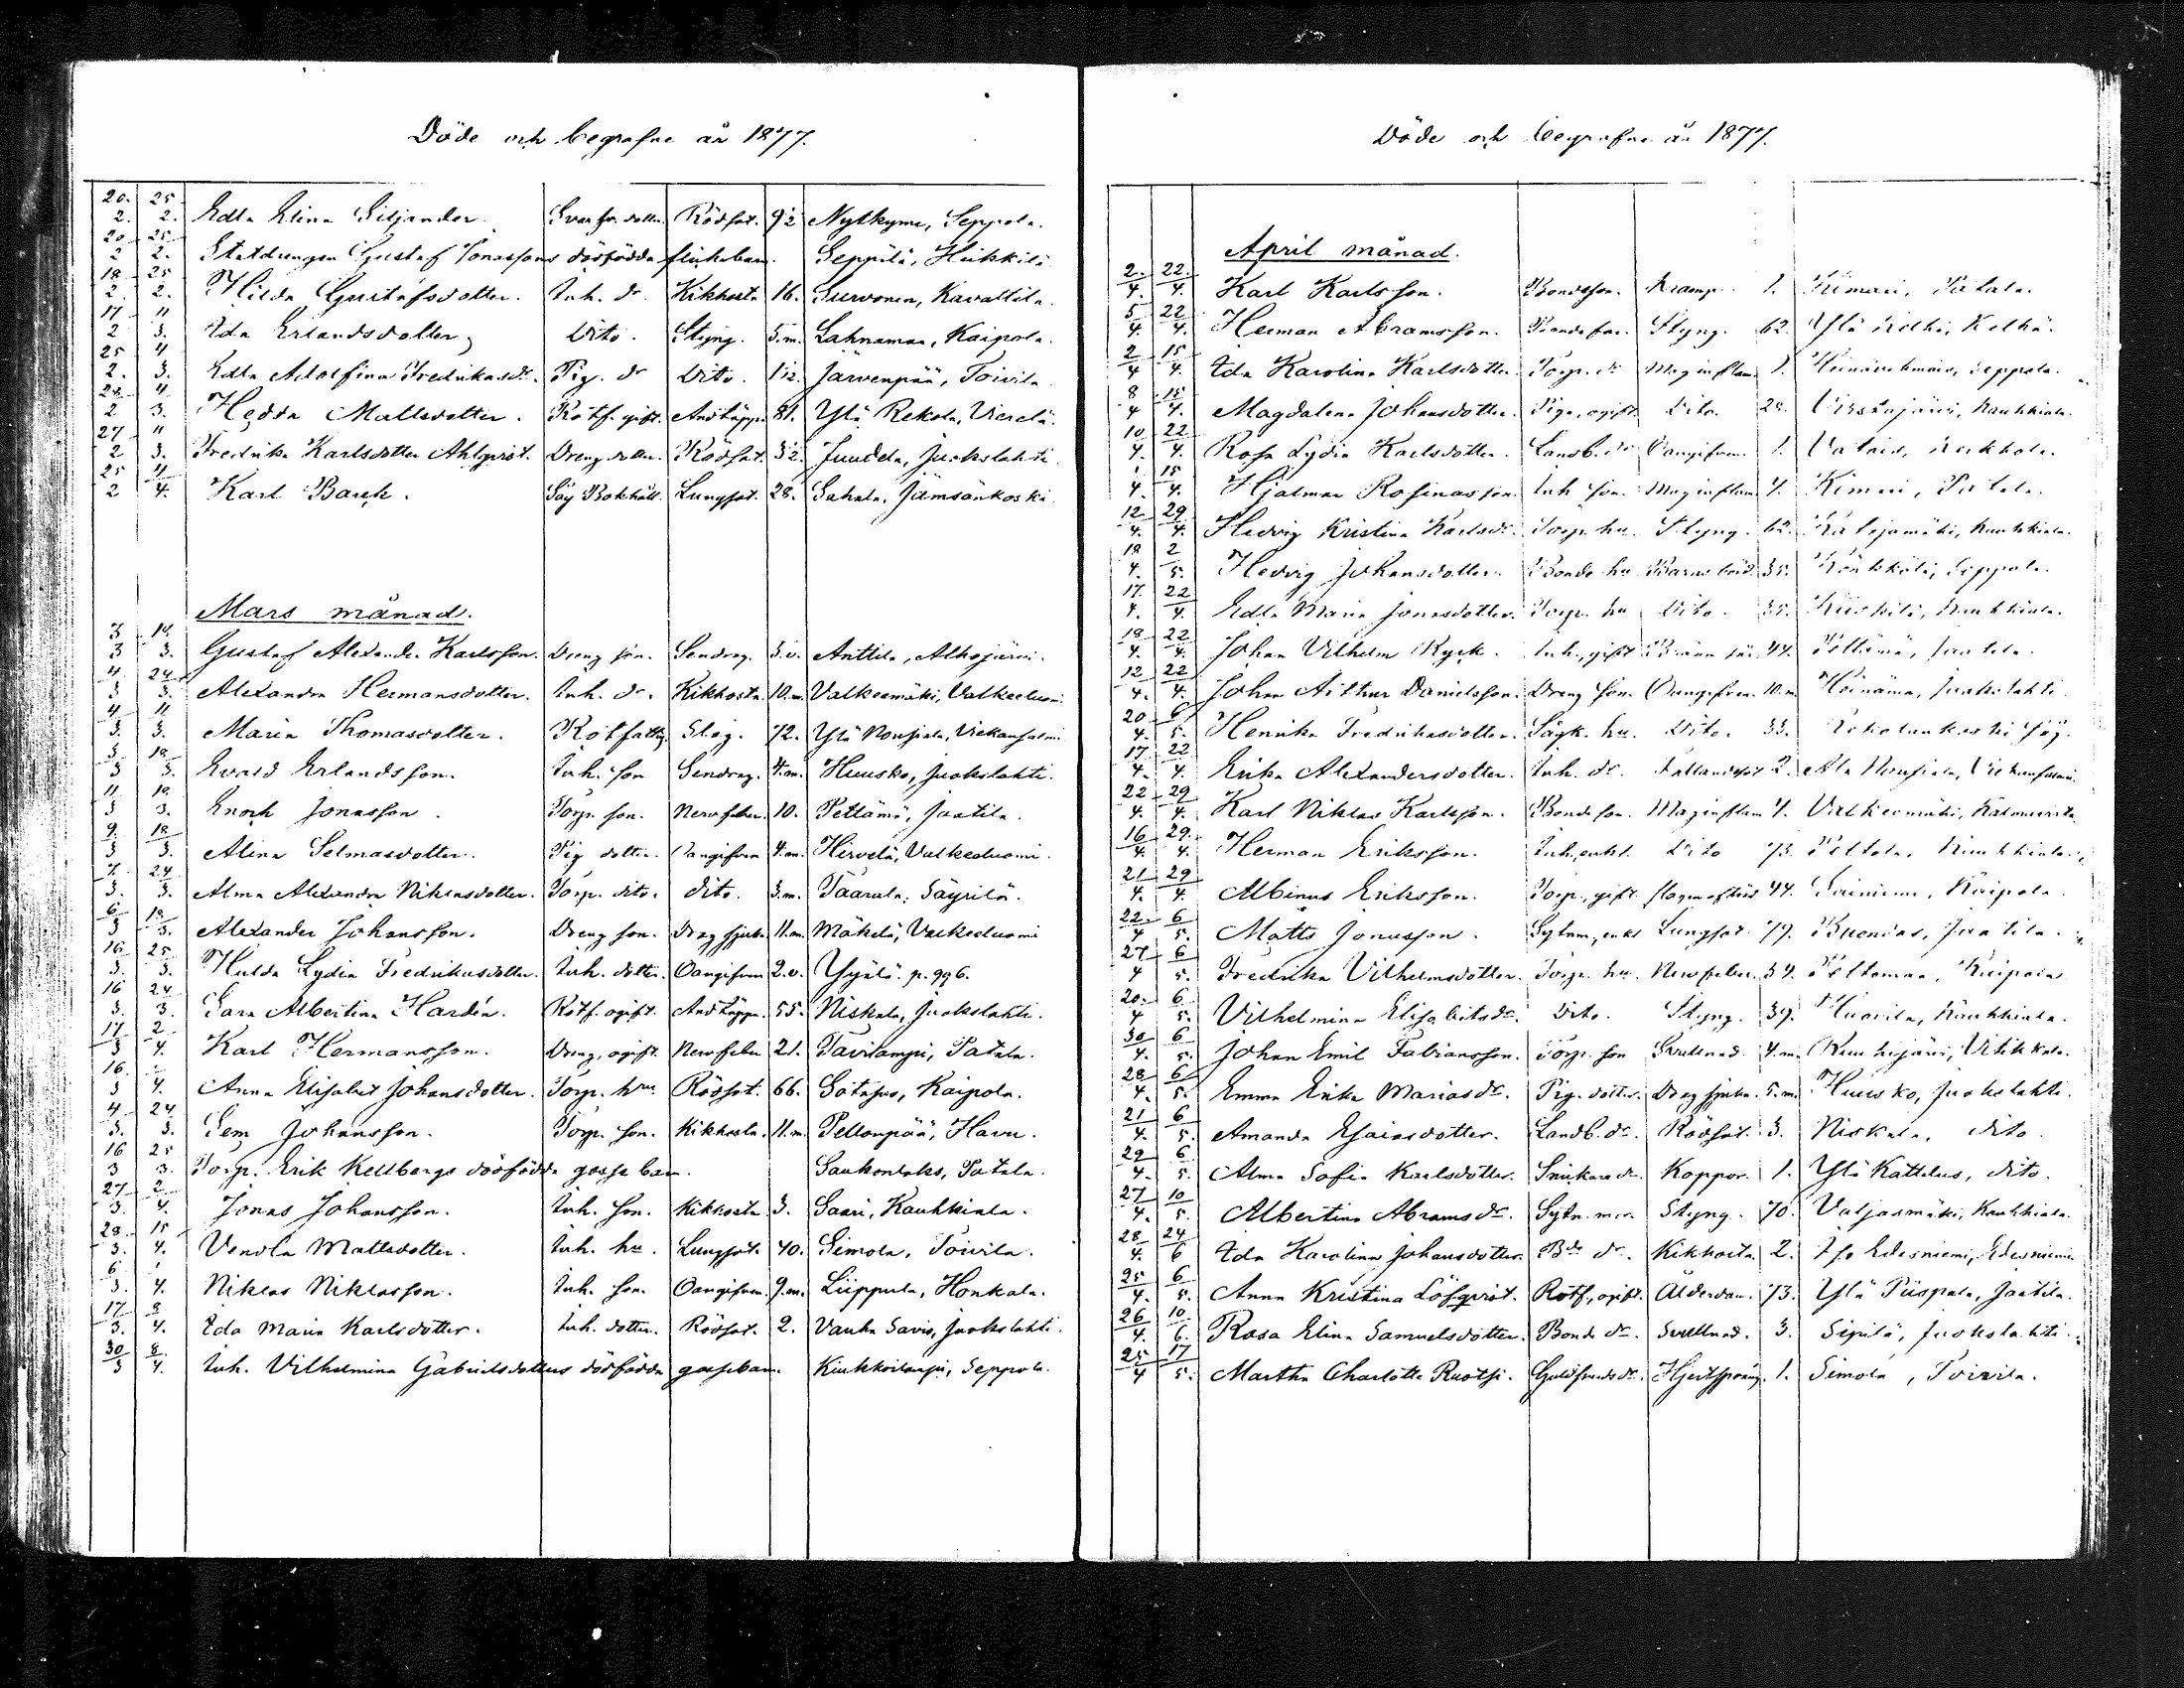 Döde och begrafne år 1877.
20/2. 25/2. Edla Elina Siljander. Svarfv. dotter. Rödsot. 9½ Nytkyme, Seppola.
20/2 25/2. Statdrängen Gustaf Jonassons dödfödda flickebarn. Seppälä, Hukkila
18/2. 25/2. Hilda Gustafsdotter. Inh. dr. Kikhosta 16. Survonen, Kavattila.
17/2 11/3. Ida Erlandsdotter, Dito. Styng. 5.m. Lahnamaa, Kaipola.
25/2. 4/3. Edla Adolfina Fredrikasdr. Pig. dr Dito. 1½. Järvenpää, Toivila.
28/2 4/3. Hedda Mattsdotter. Rotf. gift. Andtäppa 81. Ylä Rekola, Vierelä.
27/2 11/3. Fredrika Karlsdotter Ahlqvist. Dreng dotter. Rödsot. 3½. Juudela, Juokslahti.
25/2 11/4. Karl Bank. Såg Bokhåll. Lungsot. 28. Sahala, Jämsänkoski.
Mars månad.
3/3 18/3. Gustaf Alexander Karlsson. Dreng son. Sendrag. 3.v. Anttila, Alhojärvi.
4/3 24/3. Alexandra Hermansdotter. Inh. dr. Kikhosta 10.m. Valkeemäki, Valkeeluomi
4/3. 11/3. Maria Thomasdotter. Rotfattig. Slag. 72. Ylä Nousiala, Viekansalmi
3/3 18/3. Evald Erlandsson. Inh. son Sendrag. 4.m. Huusko, Juokslahti.
11/3 18/3. Enoch Jonasson. Torp. son. Nervfeber. 10. Pettämä, Jaatila.
9/3 18/3. Alina Selmasdotter. Pig dotter. Oangifven 4.m. Hirvelä, Valkeeluomi.
7/3. 24/3. Alma Alexandra Niklasdotter. Torp. dito. dito. 3.m. Täärula, Säyrilä.
6/3 18/3. Alexander Johansson. Dreng son. Dragsjuka 11.m. Mäkelä, Valkeeluomi
16/3. 25/3. Hulda Lydia Fredrikusdotter. Inh. dotter. Oangifven 2.v. Yijälä. p. 996.
16/3. 24/3. Sara Albertina Hardén. Rotf. ogift. Andtäppa. 55. Niskala, Juokslahti.
17/3 2/4. Karl Hermansson. Dreng, ogift. Nervfeber 21. Tavilampi, Patala.
16./3 4. Anna Elisabet Johansdotter. Torp. hru. Rödsot. 66. Sotasuo, Kaipola.
4/3. 24/3. Sem Johansson. Torp. son. Kikhosta. 11.m. Pellonpää, Havu.
16/3 25/3. Torp. Erik Kellbergs dödfödda gosse barn. Saukonlaks, Patala.
27/3. 2/4. Jonas Johansson. Inh. son. Kikhosta 3. Saari, Kauhkiala.
28/3. 15/4. Vendla Mattsdotter. Inh. hu. Lungsot. 40. Simola, Toivila.
6/3. 1/4. Niklas Niklasson. Inh. son. Oangifven. 9.m. Liippula, Honkala.
17/3. 8/4. Ida Maria Karlsdotter. Inh. dotter. Rödsot. 2. Vanha Savis, Juokslahti.
30/3 8/4. Inh. Vilhelmina Gabrielsdotters dödfödda gossebarn. Kiukkoilampi, Seppola.
Döde och begrafne år 1877.
April månad.
2./4. 22./4. Karl Karlsson. Bondeson. Kramp. 1. Kimari, Patala.
5/4. 22/4. Herman Abramsson. Bonde far. Styng. 62. Ylä Kelhä, Kelhä.
2/4 15/4. Ida Karolina Karlsdotter. Torp. dr Maginflam. 1. Seppola.
8/4 15/4. Magdalena Johansdotter. Piga, ogift. Dito. 28. Kauhkiala.
10/4. 22/4. Rosa Lydia Karlsdotter. Landb. dr Oangifven. 1.
1/4. 15/4. Hjalmar Rosinasson. Inh son. Maginflam. 4. Kimari, Patala.
12/4. 29/4. Hedvig Kristina Karlsdr. Torp. hu. Styng. 62. Katajamäki, Kauhkiala.
18/4. 2/5. Hedvig Johansdotter. Bonde hu Barnsbörd. 35. Seppola.
17./4. 22/4. Edla Maria Jonasdotter. Torp. hu Dito. 35. Kauhkiala.
18/4. 22/4. Johan Vilhelm Ryck. Inh., gift 44. Pettämä, Jaatila.
12/4. 22/4. Johan Arthur Danielsson. Dreng son. Oangifven. 10.m. Heinämaa, Juokslahti.
20/4. 6/5. Henrika Fredriksdotter. Sågk. hu. Dito. 33. Rekolankoski såg.
17./4. 22/4. Erika Alexandersdotter. Inh. dr. Fallandesot 2. Ala Nousiala, Viekansalmi.
22/4. 29/4. Karl Niklas Karlsson. Bonde son. Maginflam 4. Valkeemäki,
16/4. 29./4. Herman Eriksson. Inh, enkl. Dito 73. Peltola, Kauhkiala.
21/4. 29/4. Albinus Eriksson. Torp, gift. 44. Sainiemi, Kaipola.
22./4 6/5. Matts Jonasson. Sytnm, enkl Lungsot. 79. Jaatila.
27/4 6/5. Fredrika Vilhelmsdotter. Torp. hu. Nervfeber. 34. Kaipola
20./4 6/5. Vilhelmina Elisabetsdr. Dito. Styng. 39. Huovila, Kauhkiala.
30/4. 6/5. Johan Emil Fabiansson. Torp. son Svullnad. 4.m.
28/4. 6/5. Emma Erika Mariasdr. Pig. dotter. Dragsjuka. 5.m. Huusko, Juokslahti.
21/4. 6/5. Amanda Esaiasdotter. Landb. dr. Rödsot. 3. Niskala, dito
29/4. 6/5. Alma Sofia Karlsdotter. Snickare dr. Koppor. 1. Ylä Kattelus, dito.
27/4. 10/5. Albertina Abramsdr. Sytn. mor. Styng. 70. Valjasmäki, Kauhkiala.
28/4. 24/6 Ida Karolina Johansdotter. Bde dr. Kikhosta. 2. Iso Edesniemi, Edesniemi
25/4. 6/5. Anna Kristina Löfqvist. Rotf, ogift. Ålderdom. 73. Ylä Piispala, Jaatila.
26/4. 10/6. Rosa Elina Samuelsdotter. Bonde dr. Svullnad. 3. Sipilä, Juokslahti.
25/4 17/5. Martha Charlotte Ruotsi. Guldsmeds dr. Hjertsprång. 1. Simola, Toivila.